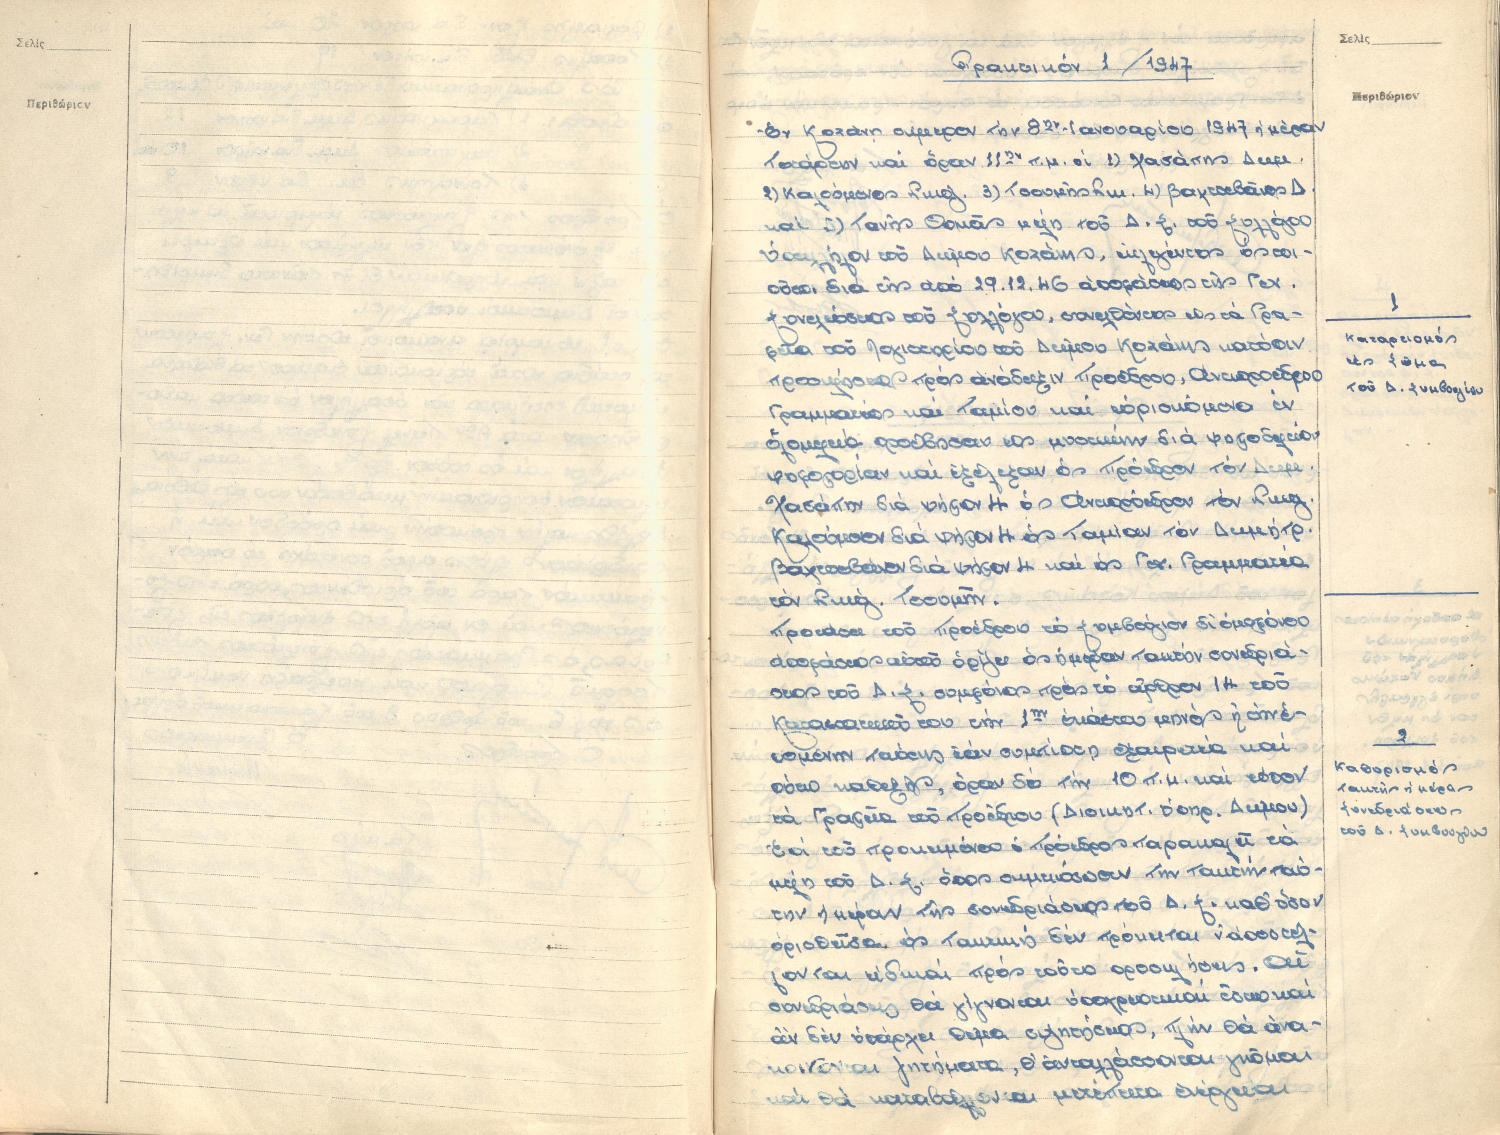 Σελίς
Περιθώριον
Πρακτικόν 1 / 1947
Ἐν Κοζάνῃ σήμερον τὴν 8ην Ἰανουαρίου 1947 ἡμέραν
Τετάρτην καὶ ὥραν 11ην π.μ. οἱ 1) Χασάπης Δημ.
2) Καλόμοιος Νικολ. 3) Τσουμῆς Νικ. 4) Βαχτσεβάνος Δ.
καὶ 5) Τανῆς Θωμᾶς μέλη τοῦ Δ. Σ. τοῦ Συλλόγου
Ὑπαλλήλων τοῦ Δήμου Κοζάνης, ἐκλεγέντες ὡς τοι-
οῦτοι διὰ τῆς ἀπὸ 29.12.46 ἀποφάσεως τῆς Γεν.
Συνελεύσεως τοῦ Συλλόγου, συνελθόντες εἰς τὰ Γρα-
φεῖα τοῦ Λογιστηρίου τοῦ Δήμου Κοζάνης κατόπιν
προσκλήσεως πρὸς ἀνάδειξιν Προέδρου, Ἀντιπροέδρου
Γραμματέως καὶ Ταμίου καὶ εὑρισκόμενα ἐν
ὁλομελείᾳ προέβησαν εἰς μυστικὴν διὰ ψηφοδελτίων
ψηφοφορίαν καὶ ἐξέλεξαν ὡς Πρόεδρον τὸν Δημ.
Χασάπην διὰ ψήφων 4 ὡς Ἀντιπρόεδρον τὸν Νικολ.
Καλόμοιον διὰ ψήφων 4 ὡς Ταμίαν τὸν Δημήτρ.
Βαχτσεβάνον διὰ ψήφων 4 καὶ ὡς Γεν. Γραμματέα
τὸν Νικολ. Τσουμῆν.
Προτάσει τοῦ Προέδρου τὸ Συμβούλιον δι' ὁμοφώνου
ἀποφάσεως αὐτοῦ ὁρίζει ὡς ἡμέραν τακτὴν συνεδριά-
σεως τοῦ Δ. Σ. συμφώνως πρὸς τὸ ἄρθρον 14 τοῦ
Καταστατικοῦ του τὴν 1ην ἑκάστου μηνὸς ἢ τὴν ἑ-
πομένην ταύτης ἐὰν συμπίπτῃ ἐξαιρετέα καὶ
οὕτω καθεξῆς, ὥραν δὲ τὴν 10 π.μ. καὶ τόπον
τὰ Γραφεῖα τοῦ Προέδρου (Διοικητ. Ὑπηρ. Δήμου)
Ἐπὶ τοῦ προκειμένου ὁ Πρόεδρος παρακαλεῖ τὰ
μέλη τοῦ Δ. Σ. ὅπως σημειώσωσιν τὴν τακτὴν ταύ-
την ἡμέραν τῆς συνεδριάσεως τοῦ Δ. Σ. καθ' ὅσον
ὁρισθεῖσα ὡς τακτικὴ δὲν πρόκειται ν' ἀποστέλ-
λονται εἰδικαὶ πρὸς τοῦτο προσκλήσεις. Αἱ
συνεδριάσεις θὰ γίγνονται ὑποχρεωτικαὶ ἔστω καὶ
ἂν δὲν ὑπάρχει θέμα συζητήσεως, πλὴν θὰ ἀνα-
κοινῶνται ζητήματα, θ' ἀνταλλάσσονται γνῶμαι
καὶ θὰ καταβάλλωνται μετέπειτα ἐνέργειαι
Σελίς
Περιθώριον
1
Καταρτισμός
εἰς Σῶμα
τοῦ Δ. Συμβουλίου
2
Καθορισμός
τακτῆς ἡμέρας
Συνεδριάσεως
τοῦ Δ. Συμβουλίου